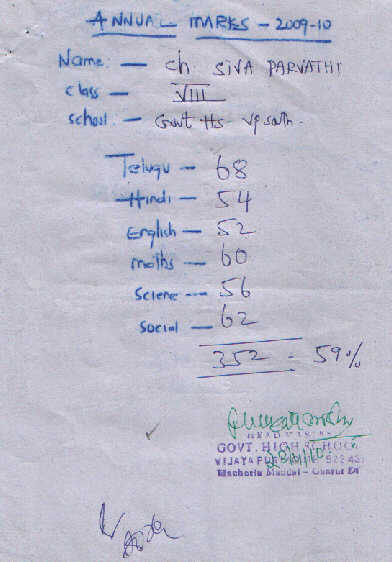 ANNUAL MARKS - 2009-10
Name. - ch. SIVA PARVATHI
class - VIII
school. - Govt HS - Vp south.
Telugu - 68
Hindi - 54
English - 52
maths - 60
Sciene - 56
Social - 62
352 - 59%
HEADMASTER
GOVT. HIGH SCHOOL
VIJAYAPURI
Macherla Mandal - Guntur Dt